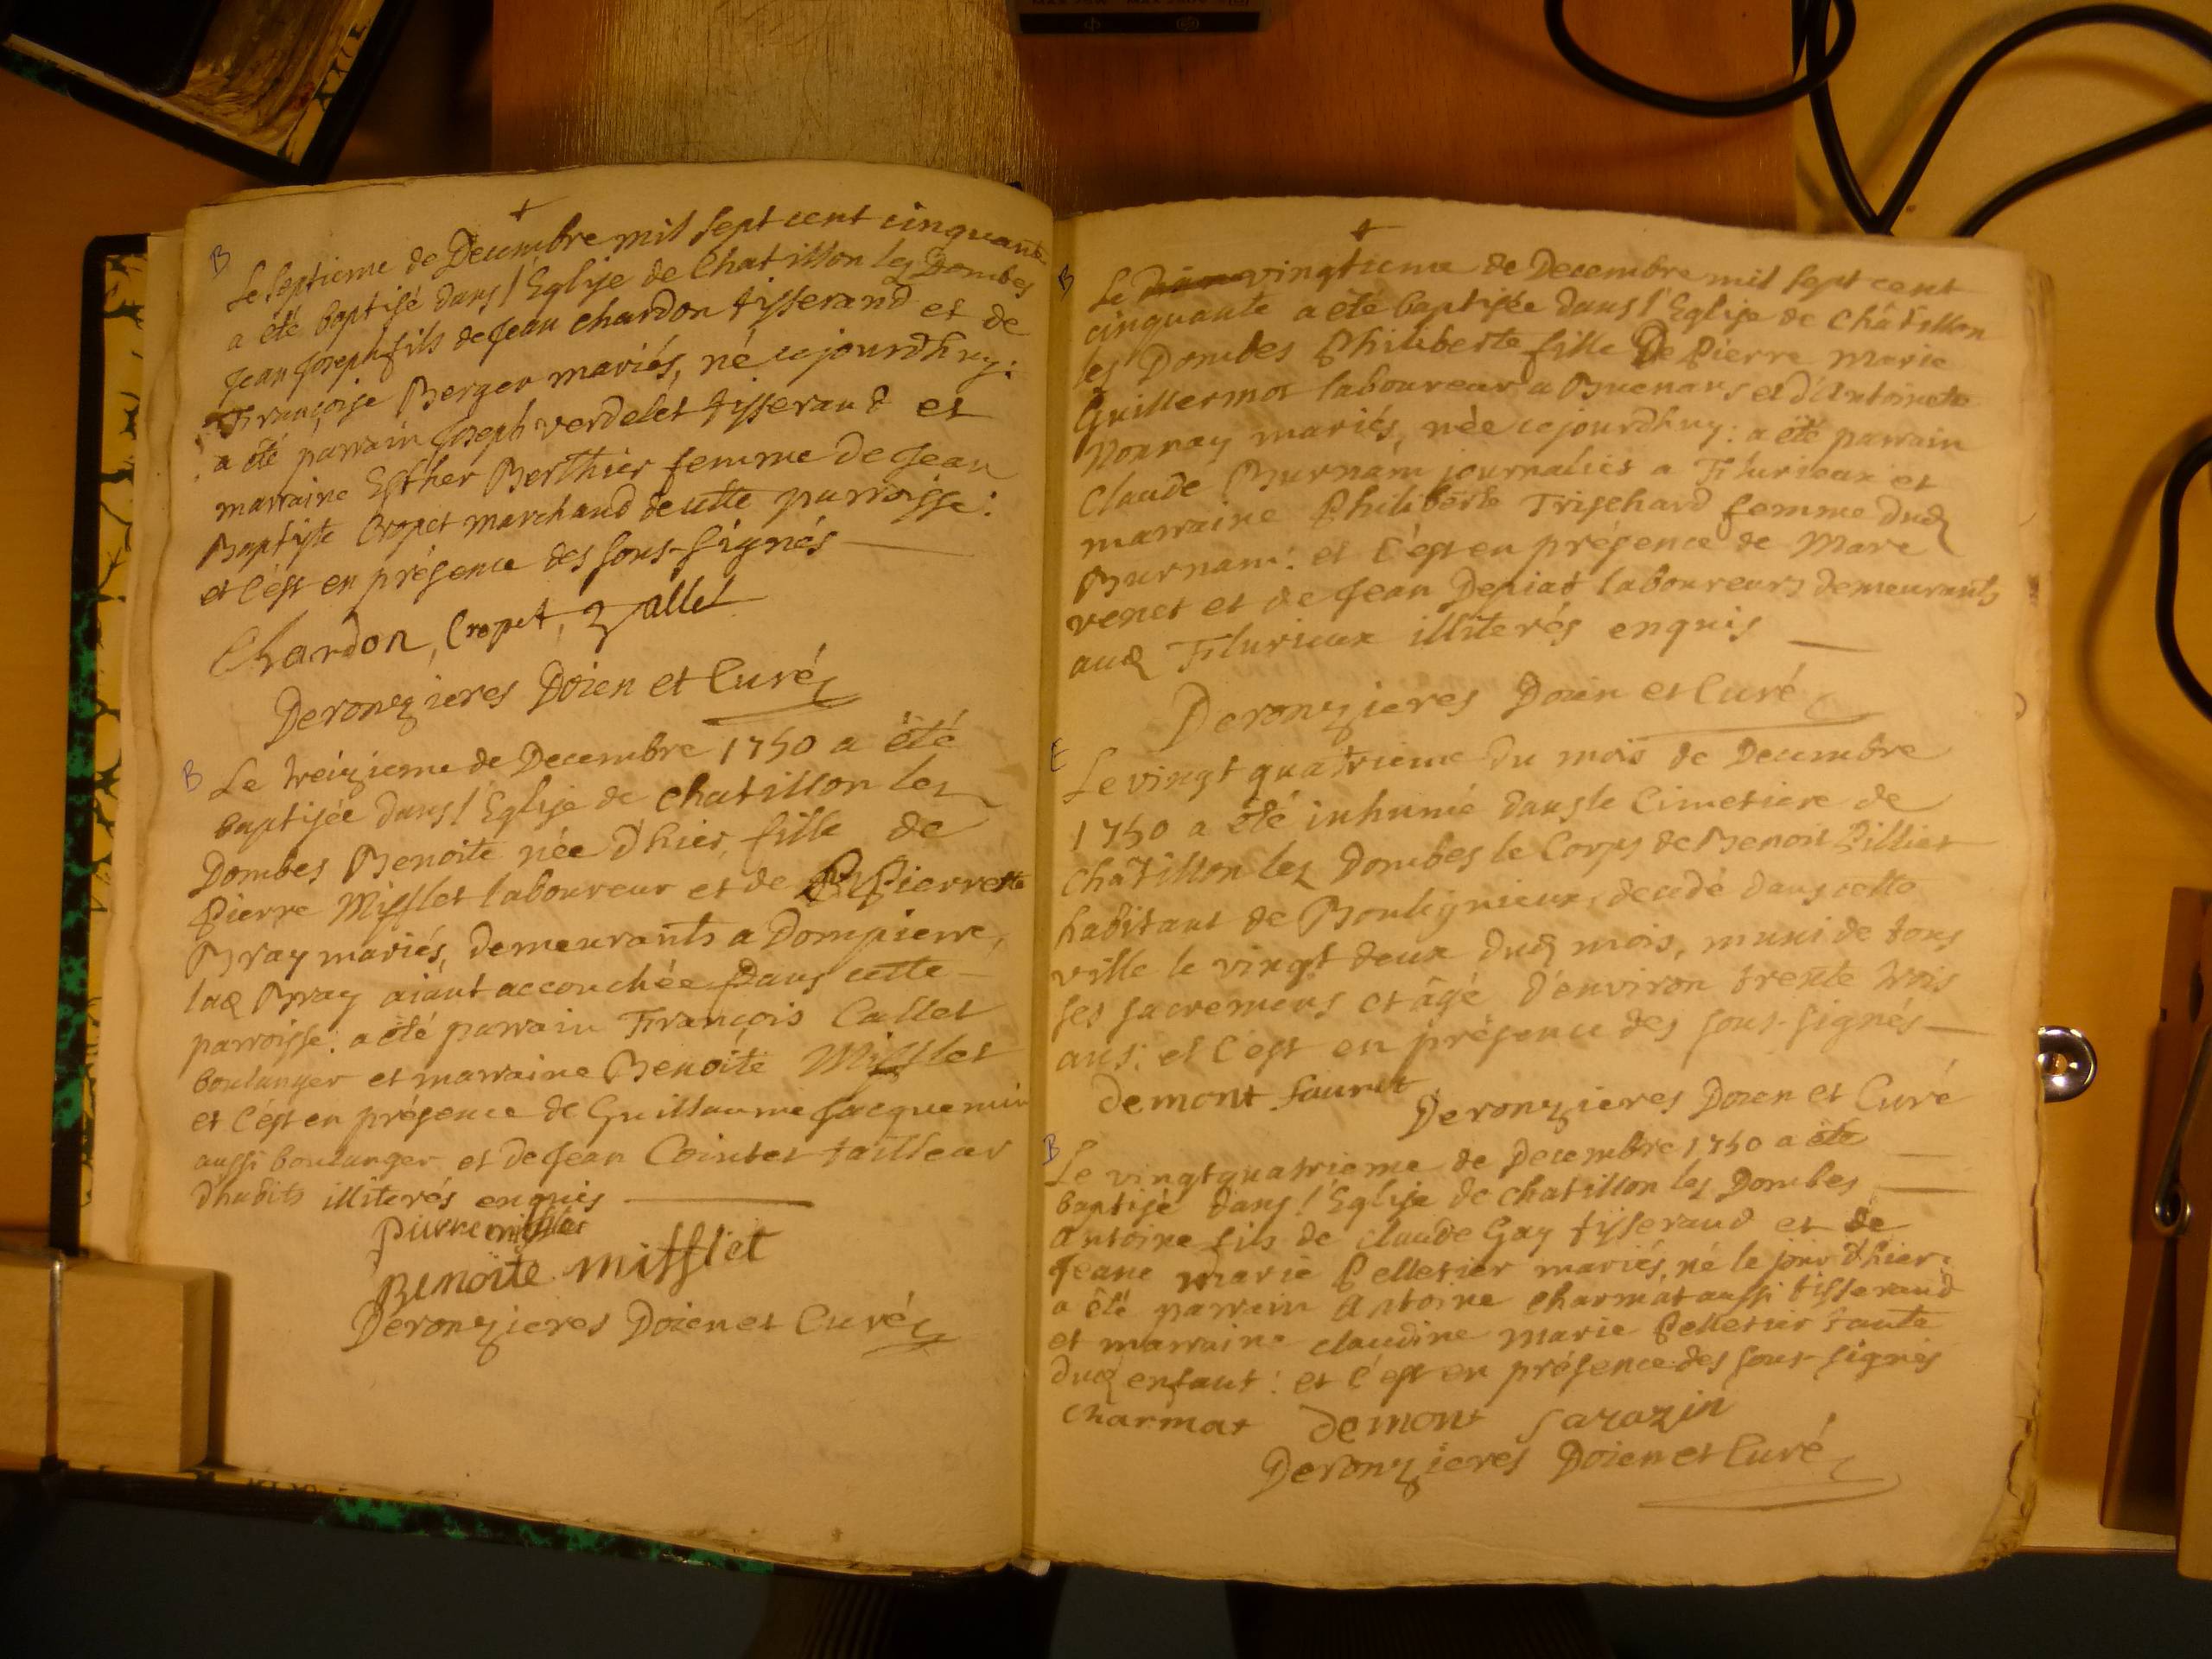 B
Le septieme de Decembre mil sept cent cinquante
a été baptisé dans l'Eglise de Chatillon les Dombes
Jean Joseph fils de Jean Chardon tisserand et de
Françoise Berger mariés, né cejourdhuy:
a été parrain Joseph verdelet tisserand et
marraine Esther Berthier femme de Jean
Baptiste Cropet marchand de cette parroisse:
et c'est en présence des sous-signés
Chardon, Cropet,
Deronzieres Doien et Curé
B
Le treizieme de Decembre 1750 a été
baptisée dans l'Eglise de Chatillon les
Dombes Benoite née d'hier, fille de
Pierre Mifflet laboureur et de Pierrette
Bray mariés, demeurants a Dompierre,
lad Bray aiant accouchée dans cette
parroisse: a été parrain François Callet
boulanger et marraine Benoite Mifflet
et c'est en présence de Guillaume Jacquemin
aussi boulanger et de Jean Cointet tailleur
d'habits illiterés enquis
pierre mifflet
Benoite mifflet
Deronzieres Doien et Curé
B
Le vingtieme de Decembre mil sept cent
cinquante a été baptisée dans l'Eglise de Châtillon
les Dombes Philiberte fille De Pierre Marie
Guillermot laboureur a Buenans et d'Antoinete
Nonnay mariés, née cejourdhuy: a été parrain
Claude Burnam journalier a Flurieux et
marraine Philiberte Trischard femme dud
Burnam: et c'est en présence de Marc
venet et de Jean Depiat laboureurs demeurants
aud Flurieux illiterés enquis
Deronzieres Doien et Curé
E
Le vingt quatrieme du mois de Decembre
1750 a été inhumé dans le Cimetiere de
Châtillon les Dombes le Corps de Benoit Pillier
habitant de Bouligneux, decedé dans cette
ville le vingt deux dud mois, muni de tous
ses sacremens et âgé d'environ trente trois
ans: et c'est en présence des sous-signés
demont
Deronzieres Doien et Curé
B
Le vingtquatrieme de Decembre 1750 a été
baptisé dans l'Eglise de chatillon les Dombes
Antoine fils de claude Gay tisserand et de
Jeane Marie Pelletier mariés, né le jour d'hier.
a été parrein Antoine Charmat aussi tisserand
et marraine claudine Marie Pelletier tante
dud enfant: et c'est en présence des sous-signés
Charmat demont Sarazin
Deronzieres Doien et Curé